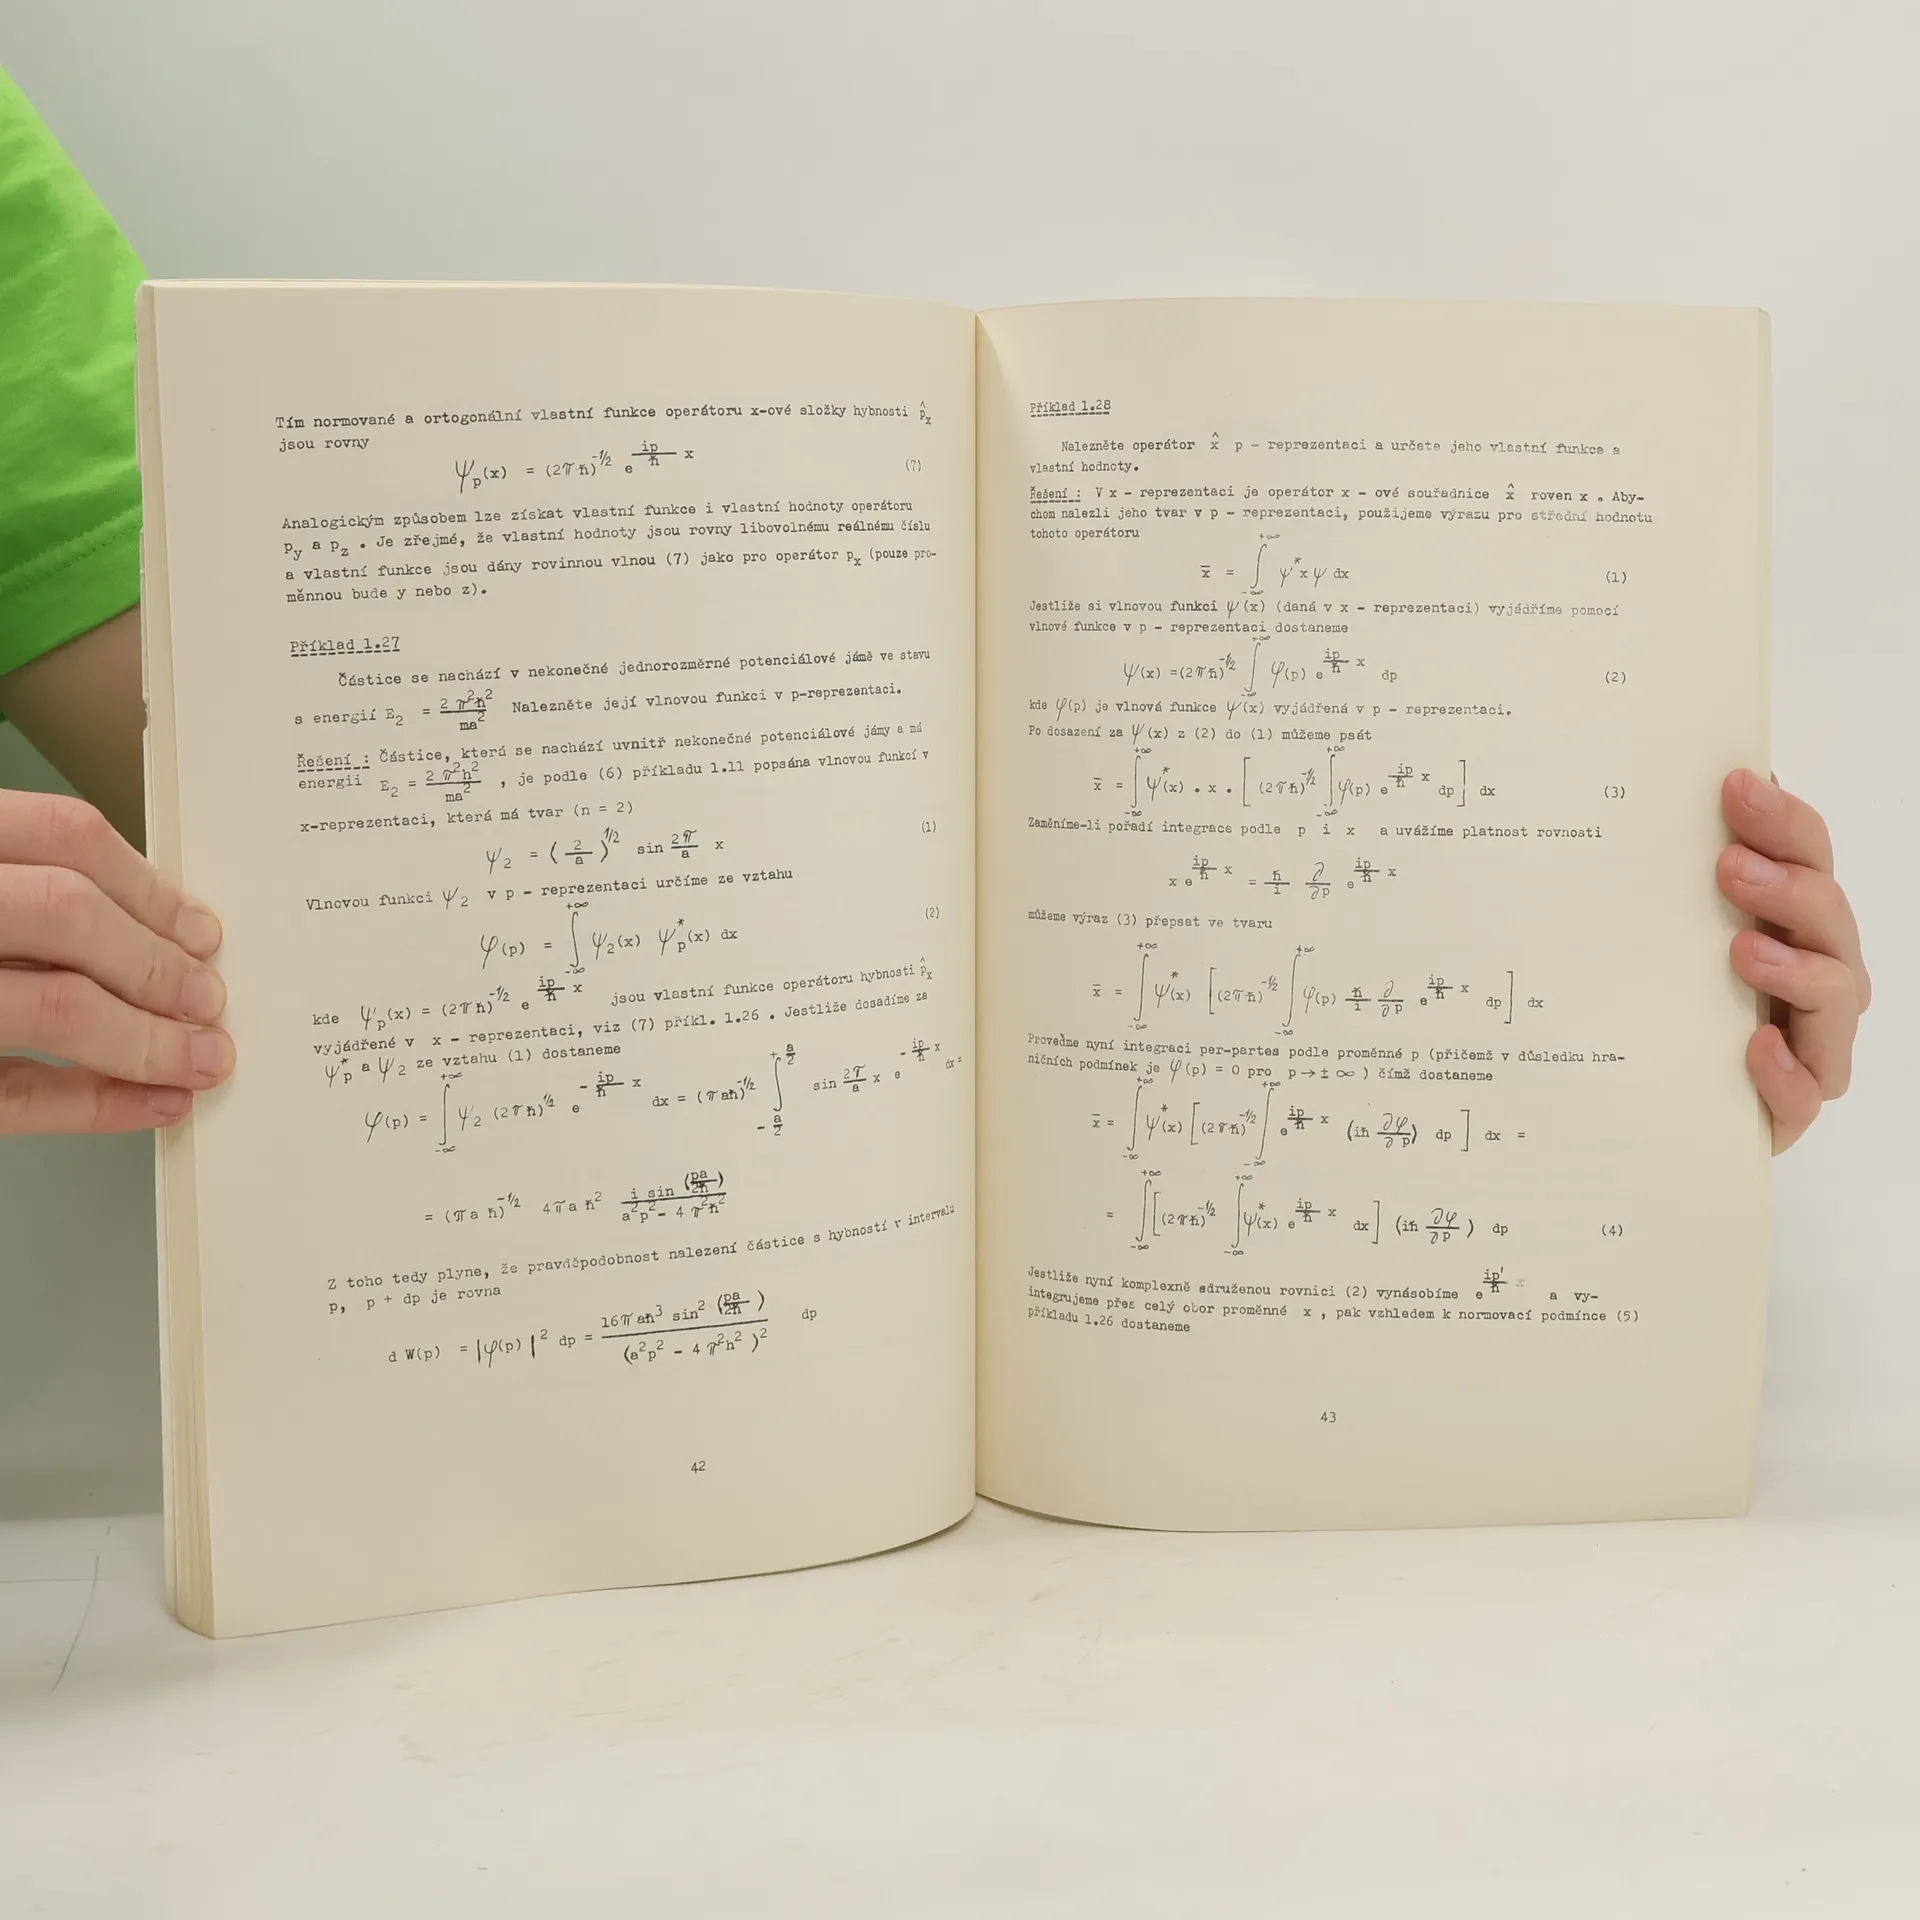 Tím normované a ortogonální vlastní funkce operátoru x-ové složky hybnosti p̂ₓ
jsou rovny
ψ_p(x) = (2πħ)^(-1/2) e^(ip/ħ x) (7)
Analogickým způsobem lze získat vlastní funkce i vlastní hodnoty operátoru
p_y a p_z . Je zřejmé, že vlastní hodnoty jsou rovny libovolnému reálnému číslu
a vlastní funkce jsou dány rovinnou vlnou (7) jako pro operátor pₓ (pouze pro-
měnnou bude y nebo z).
Příklad 1.27
Částice se nachází v nekonečné jednorozměrné potenciálové jámě ve stavu
s energií E₂ = 2π²ħ²/ma² Nalezněte její vlnovou funkci v p-reprezentaci.
Řešení : Částice, která se nachází uvnitř nekonečné potenciálové jámy a má
energii E₂ = 2π²ħ²/ma² , je podle (6) příkladu 1.11 popsána vlnovou funkcí v
x-reprezentaci, která má tvar (n = 2)
ψ₂ = (2/a)^(1/2) sin 2π/a x (1)
Vlnovou funkci ψ₂ v p - reprezentaci určíme ze vztahu
φ(p) = ∫_(-∞)^(+∞) ψ₂(x) ψ_p*(x) dx (2)
kde ψ_p(x) = (2πħ)^(-1/2) e^(ip/ħ x) jsou vlastní funkce operátoru hybnosti p̂ₓ
vyjádřené v x - reprezentaci, viz (7) příkl. 1.26 . Jestliže dosadíme za
ψ_p* a ψ₂ ze vztahu (1) dostaneme
φ(p) = ∫_(-∞)^(+∞) ψ₂ (2πħ)^(1/2) e^(-ip/ħ x) dx = (πaħ)^(-1/2) ∫_(-a/2)^(+a/2) sin 2π/a x e^(-ip/ħ x) dx =
= (πaħ)^(-1/2) 4πaħ² i sin (pa/2ħ) / a²p² - 4π²ħ²
Z toho tedy plyne, že pravděpodobnost nalezení částice s hybností v intervalu
p, p + dp je rovna
d W(p) = |φ(p)|² dp = 16πaħ³ sin² (pa/2ħ) / (a²p² - 4π²ħ²)² dp
42
Příklad 1.28
Nalezněte operátor x̂ p - reprezentaci a určete jeho vlastní funkce a
vlastní hodnoty.
Řešení : V x - reprezentaci je operátor x - ové souřadnice x̂ roven x . Aby-
chom nalezli jeho tvar v p - reprezentaci, použijeme výrazu pro střední hodnotu
tohoto operátoru
x̄ = ∫_(-∞)^(+∞) ψ* x ψ dx (1)
Jestliže si vlnovou funkci ψ(x) (daná v x - reprezentaci) vyjádříme pomocí
vlnové funkce v p - reprezentaci dostaneme
ψ(x) =(2πħ)^(-1/2) ∫_(-∞)^(+∞) φ(p) e^(ip/ħ x) dp (2)
kde φ(p) je vlnová funkce ψ(x) vyjádřená v p - reprezentaci.
Po dosazení za ψ(x) z (2) do (1) můžeme psát
x̄ = ∫_(-∞)^(+∞) ψ*(x) . x . [ (2πħ)^(-1/2) ∫_(-∞)^(+∞) φ(p) e^(ip/ħ x) dp ] dx (3)
Zaměníme-li pořadí integrace podle p i x a uvážíme platnost rovnosti
x e^(ip/ħ x) = ħ/i ∂/∂p e^(ip/ħ x)
můžeme výraz (3) přepsat ve tvaru
x̄ = ∫_(-∞)^(+∞) ψ*(x) [ (2πħ)^(-1/2) ∫_(-∞)^(+∞) φ(p) ħ/i ∂/∂p e^(ip/ħ x) dp ] dx
Proveďme nyní integraci per-partes podle proměnné p (přičemž v důsledku hra-
ničních podmínek je φ(p) = 0 pro p → ± ∞ ) čímž dostaneme
x̄ = ∫_(-∞)^(+∞) ψ*(x) [ (2πħ)^(-1/2) ∫_(-∞)^(+∞) e^(ip/ħ x) (iħ ∂φ/∂p) dp ] dx =
= ∫_(-∞)^(+∞) [ (2πħ)^(-1/2) ∫_(-∞)^(+∞) ψ*(x) e^(ip/ħ x) dx ] (iħ ∂φ/∂p ) dp (4)
Jestliže nyní komplexně sdruženou rovnici (2) vynásobíme e^(ip'/ħ x) a vy-
integrujeme přes celý obor proměnné x , pak vzhledem k normovací podmínce (5)
příkladu 1.26 dostaneme
43